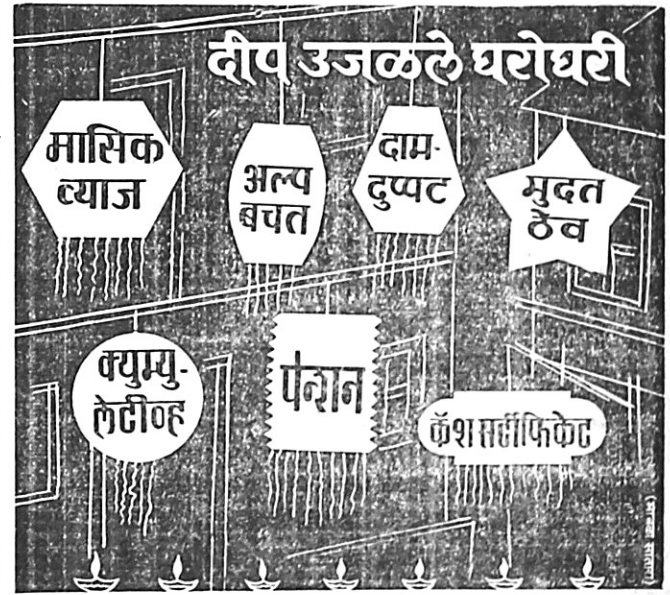 दीप उजळले घरोघरी
मासिक
व्याज
अल्प
बचत
दाम-
दुप्पट
मुदत
ठेव
क्युम्यु-
लेटीव्ह
पेन्शन
कॅश सर्टीफिकेट